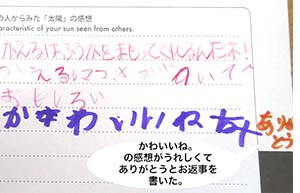 の人からみた「太陽」の感想
characteristic of your sun seen from others.
かえるはぶうかをまもってくれるんだネ!
かえる
おもしろい
かわいいね
ありがとう
かわいいね。
の感想がうれしくて
ありがとうとお返事を
書いた。